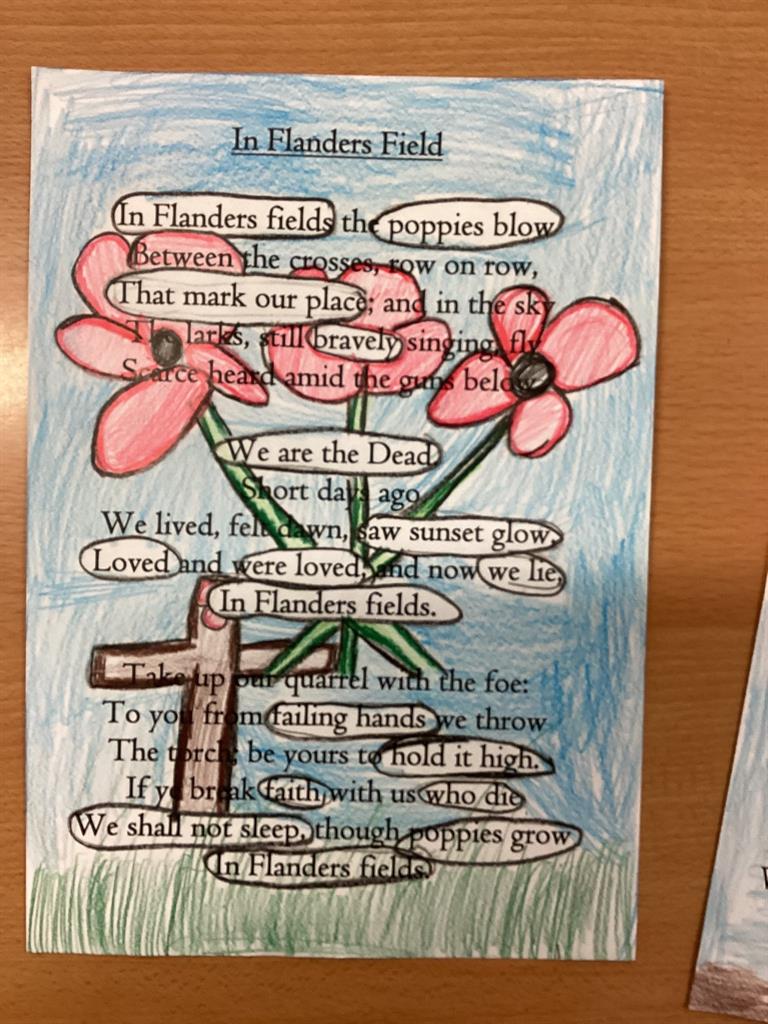 In Flanders Field
In Flanders fields the poppies blow
Between the crosses, row on row,
That mark our place; and in the sky
The larks, still bravely singing, fly
Scarce heard amid the guns below.
We are the Dead.
Short days ago
We lived, felt dawn, saw sunset glow,
Loved and were loved, and now we lie,
In Flanders fields.
Take up our quarrel with the foe:
To you from failing hands we throw
The torch; be yours to hold it high.
If ye break faith with us who die
We shall not sleep, though poppies grow
In Flanders fields.